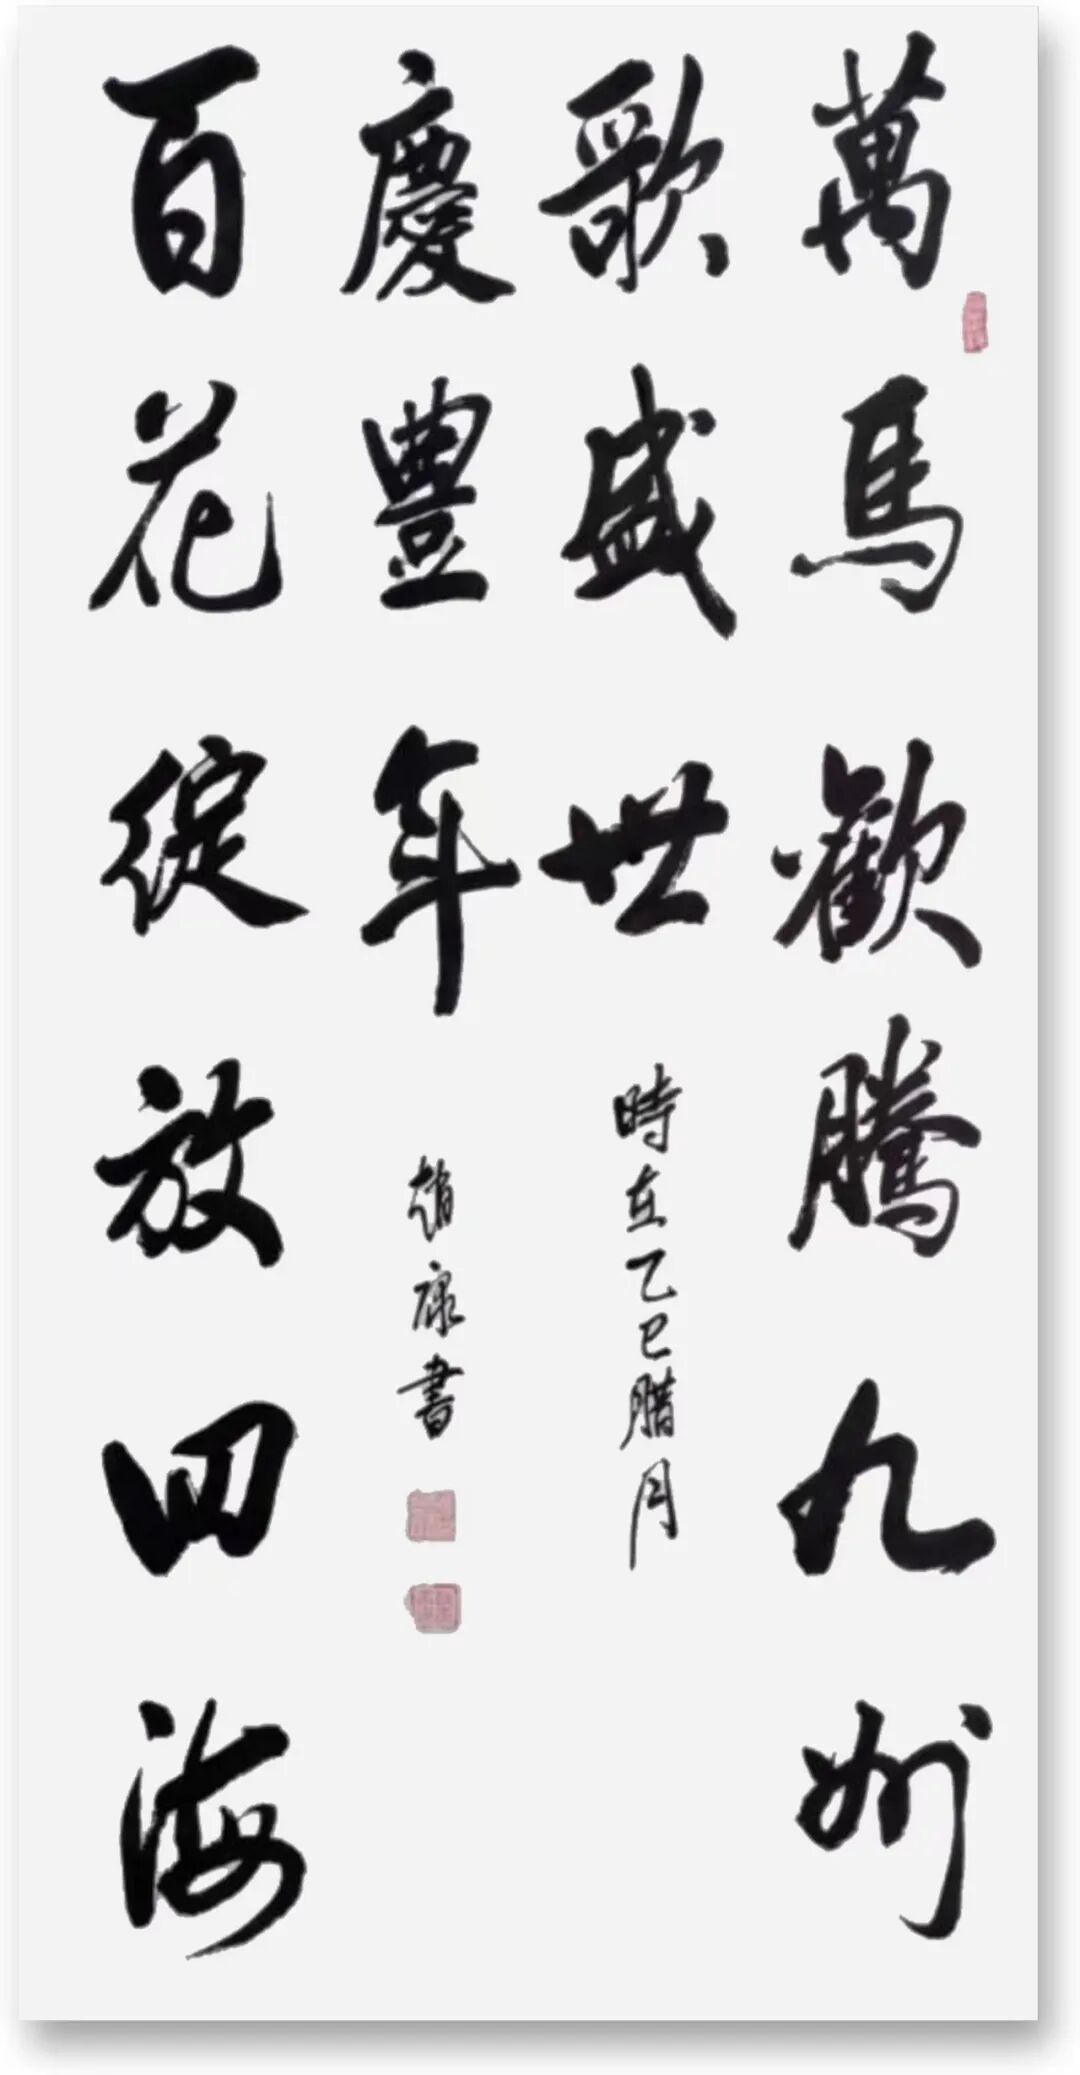 萬馬歡騰九州
歌盛世
時在乙巳腊月
百花綻放四海
慶豐年
趙康書